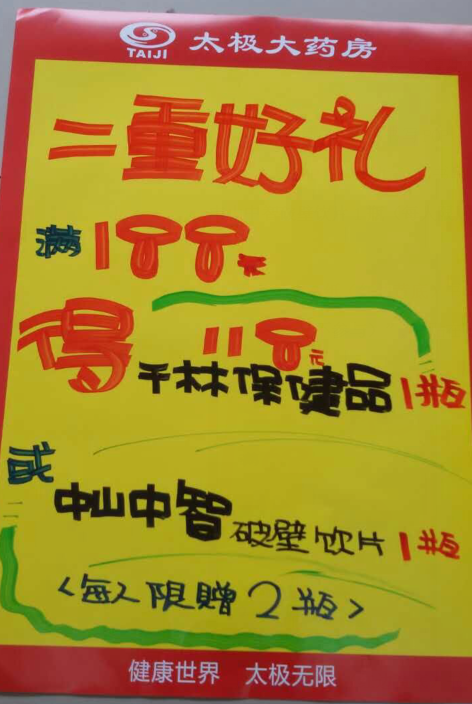 TAIJI 太极大药房
二重好礼
满188元
得118元
千林保健品1瓶
或
中山中智破壁饮片1瓶
<每人限赠2瓶>
健康世界 太极无限